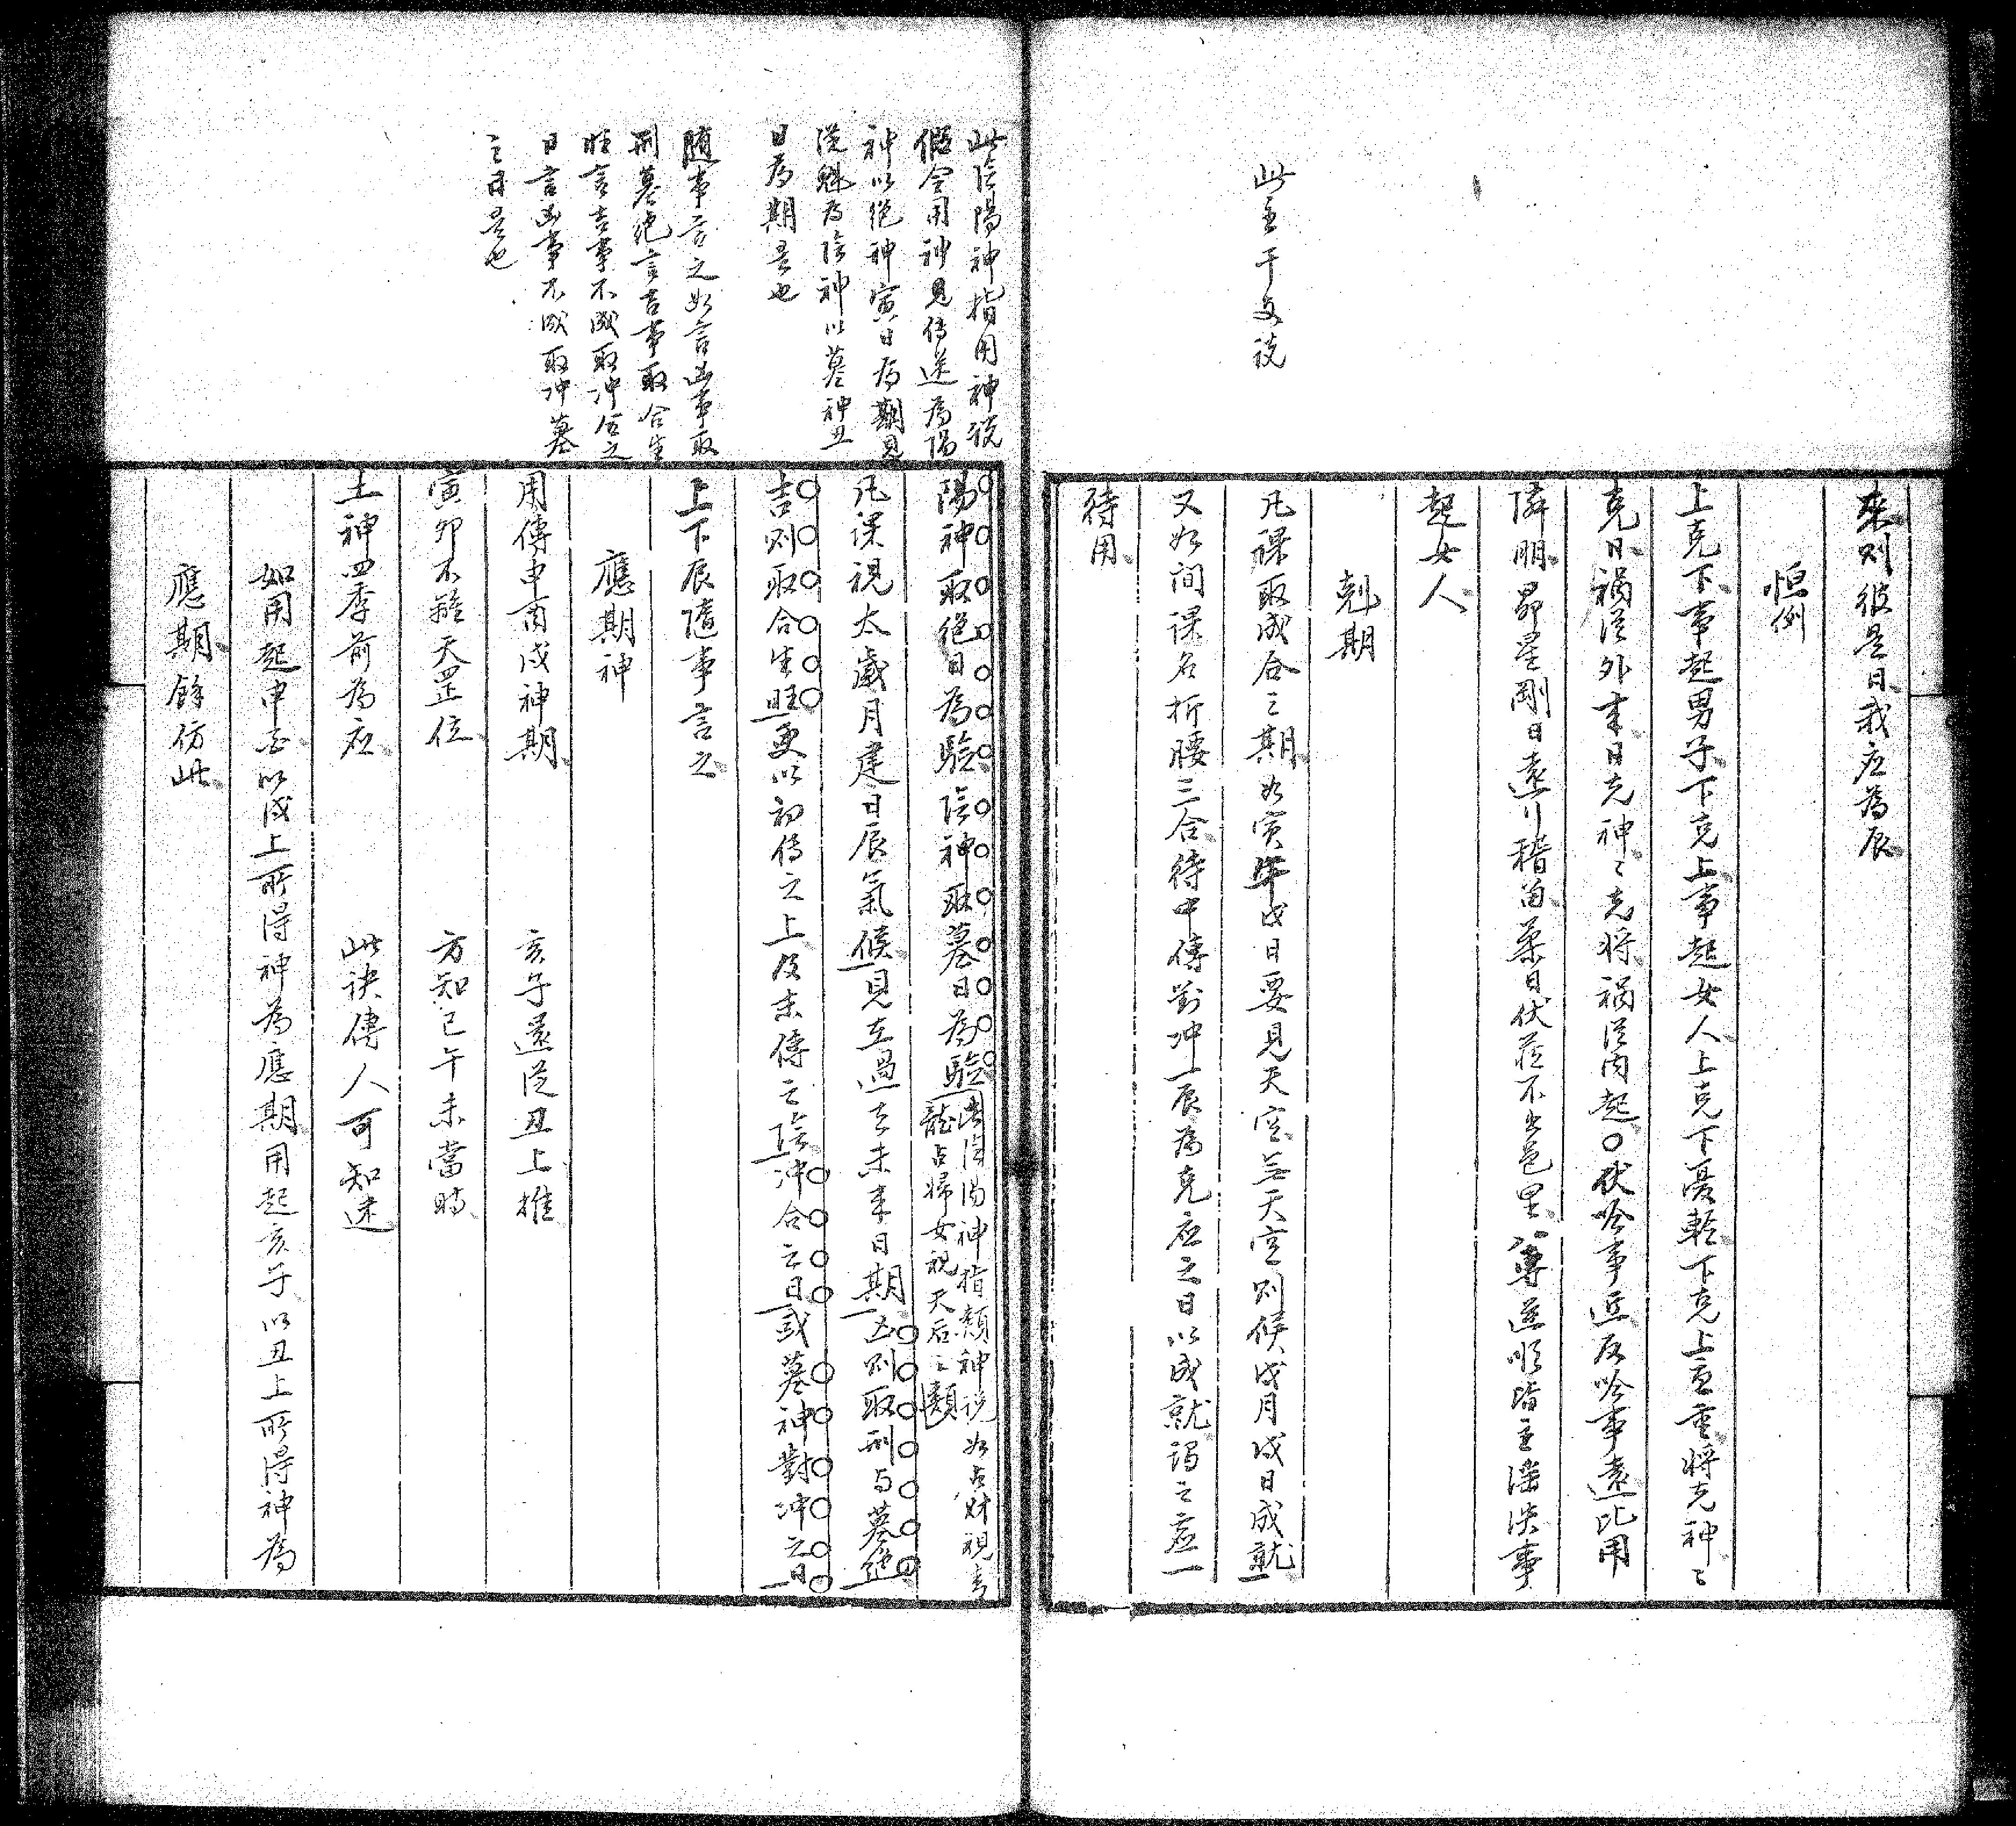 來則彼是日我应為辰
恒例
上克下事起男子下克上事起女人上克下憂輕下克上憂重將克神々
克日禍從外来日克神々克将禍從内起〇伏吟事近反吟事遠比用
隣朋昴星剛日遠行稽留柔日伏藏不出邑里八專逆順皆主淫泆事
起女人
剋期
凡課取成合之期如寅年戌日要見天空無天空則候戌月戌日成就
又如間課名折腰三合待中傳對冲一辰為克应之日以成就謂之虛一
待用
此至干支說
陽神取絕日為驗陰神取墓日為驗此陰陽神指類神說如占財視青
龍占婦女視天后之類
凡課視太歲月建日辰氣候見在過去未来日期凶則取刑与墓絕
吉則取合生旺更以初传之上及末傳之陰冲合之日或墓神對冲之日
上下辰隨事言之
應期神
用傳申酉戌神期 亥子還從丑上推
寅卯不離天罡位 方知巳午未當時
土神四季前為应 此訣傳人可知迷
如用起申酉以戌上所得神為應期用起亥子以丑上所得神為
應期餘仿此
此陰陽神指用神說
假令用神見传送為陽
神以絕神寅日為期見
從魁為陰神以墓神丑
日為期是也
隨事言之如言凶事取
刑墓絕言吉事取合生
旺言吉事不成取冲合之
日言凶事不成取冲墓
之日是也